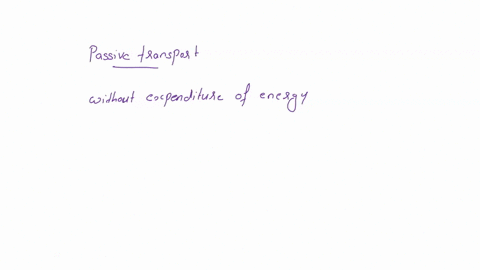 Passive transport
without expenditure of energy